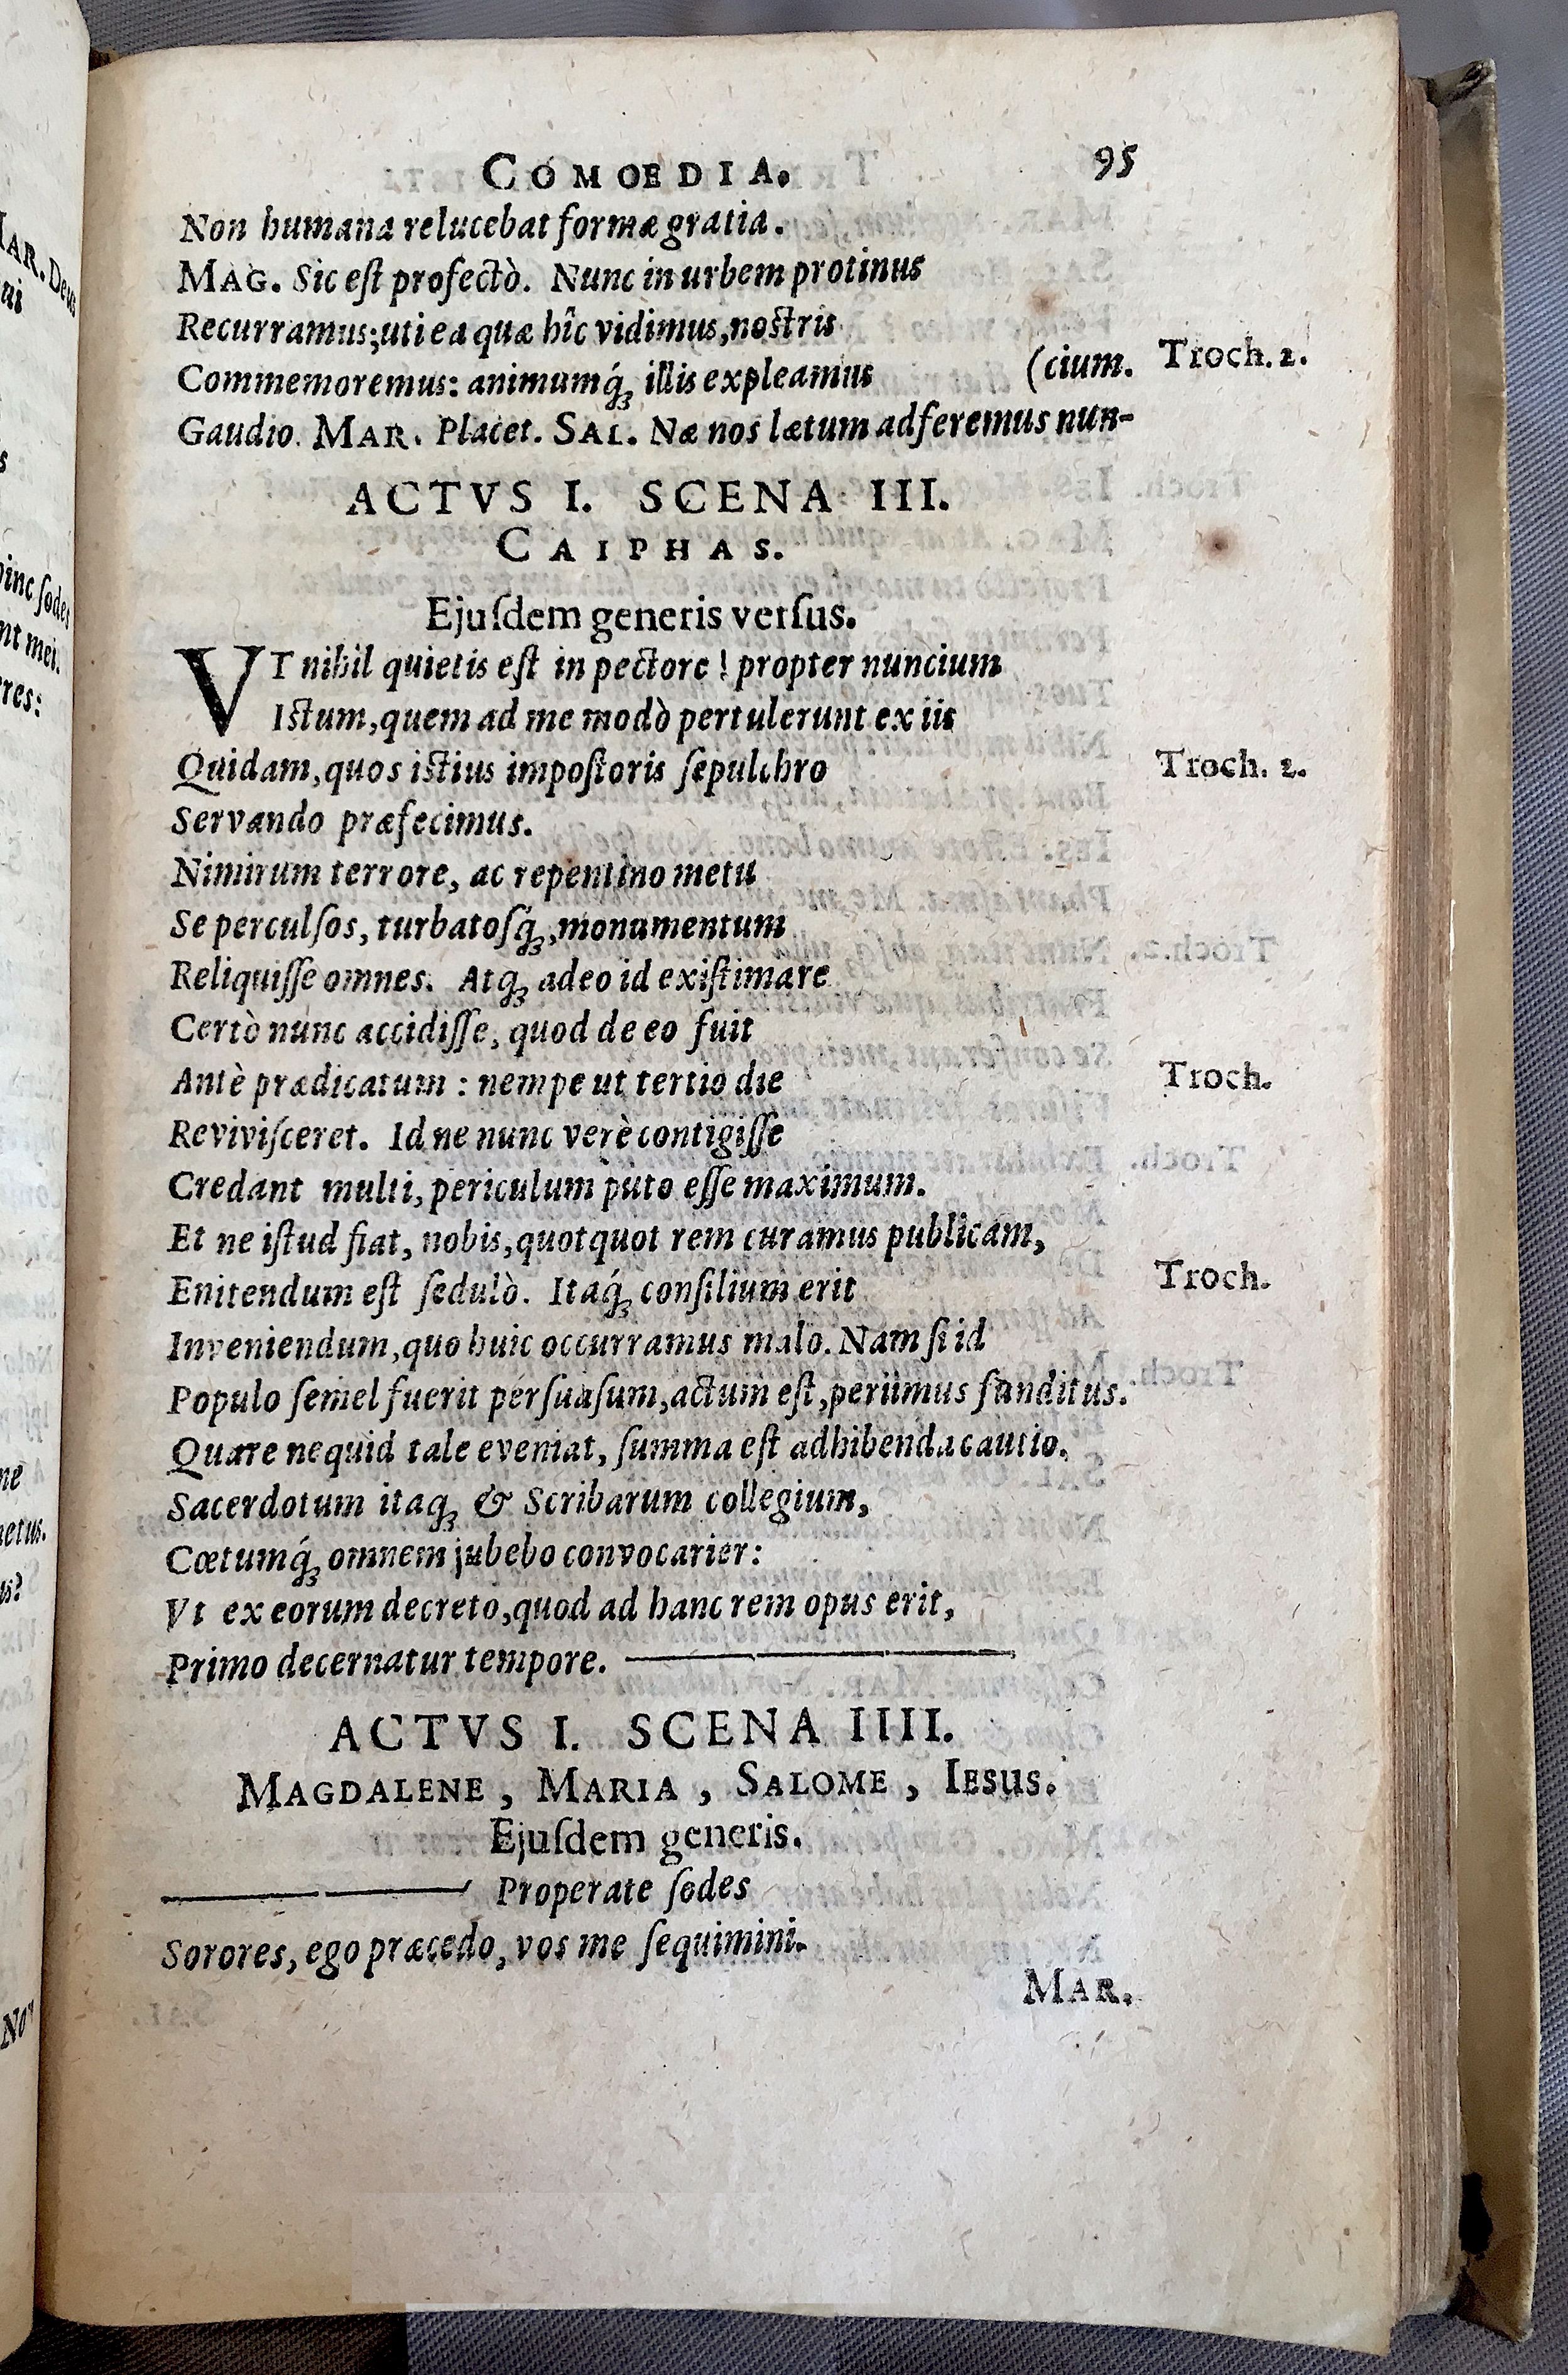 COMOEDIA. 95
Non humana relucebat formæ gratia.
MAG. Sic eſt profectò. Nunc in urbem protinus
Recurramus; uti ea quæ hîc vidimus, noſtris
Commemoremus: animumq́ꝫ illis expleamus (cium. Troch. 2.
Gaudio. MAR. Placet. SAL. Næ nos lætum adferemus nun-
ACTVS I. SCENA III.
CAIPHAS.
Ejuſdem generis verſus.
VT nihil quietis eſt in pectore! propter nuncium
Iſtum, quem ad me modò pertulerunt ex iis
Quidam, quos iſtius impoſtoris ſepulchro Troch. 2.
Servando præfecimus.
Nimirum terrore, ac repentino metu
Se perculſos, turbatoſq́ꝫ, monumentum
Reliquiſſe omnes. Atqꝫ adeo id exiſtimare
Certò nunc accidiſſe, quod de eo fuit
Antè prædicatum: nempe ut tertio die Troch.
Reviviſceret. Id ne nunc verè contigiſſe
Credant multi, periculum puto eſſe maximum.
Et ne iſtud fiat, nobis, quotquot rem curamus publicam,
Enitendum eſt ſedulò. Itaq́ꝫ conſilium erit Troch.
Inveniendum, quo huic occurramus malo. Nam ſi id
Populo ſemel fuerit perſuaſum, actum eſt, periimus funditus.
Quare nequid tale eveniat, ſumma eſt adhibenda cautio.
Sacerdotum itaqꝫ & Scribarum collegium,
Cœtumq́ꝫ omnem jubebo convocarier:
Vt ex eorum decreto, quod ad hanc rem opus erit,
Primo decernatur tempore.
ACTVS I. SCENA IIII.
MAGDALENE, MARIA, SALOME, IESUS.
Ejuſdem generis.
Properate ſodes
Sorores, ego præcedo, vos me ſequimini.
MAR.